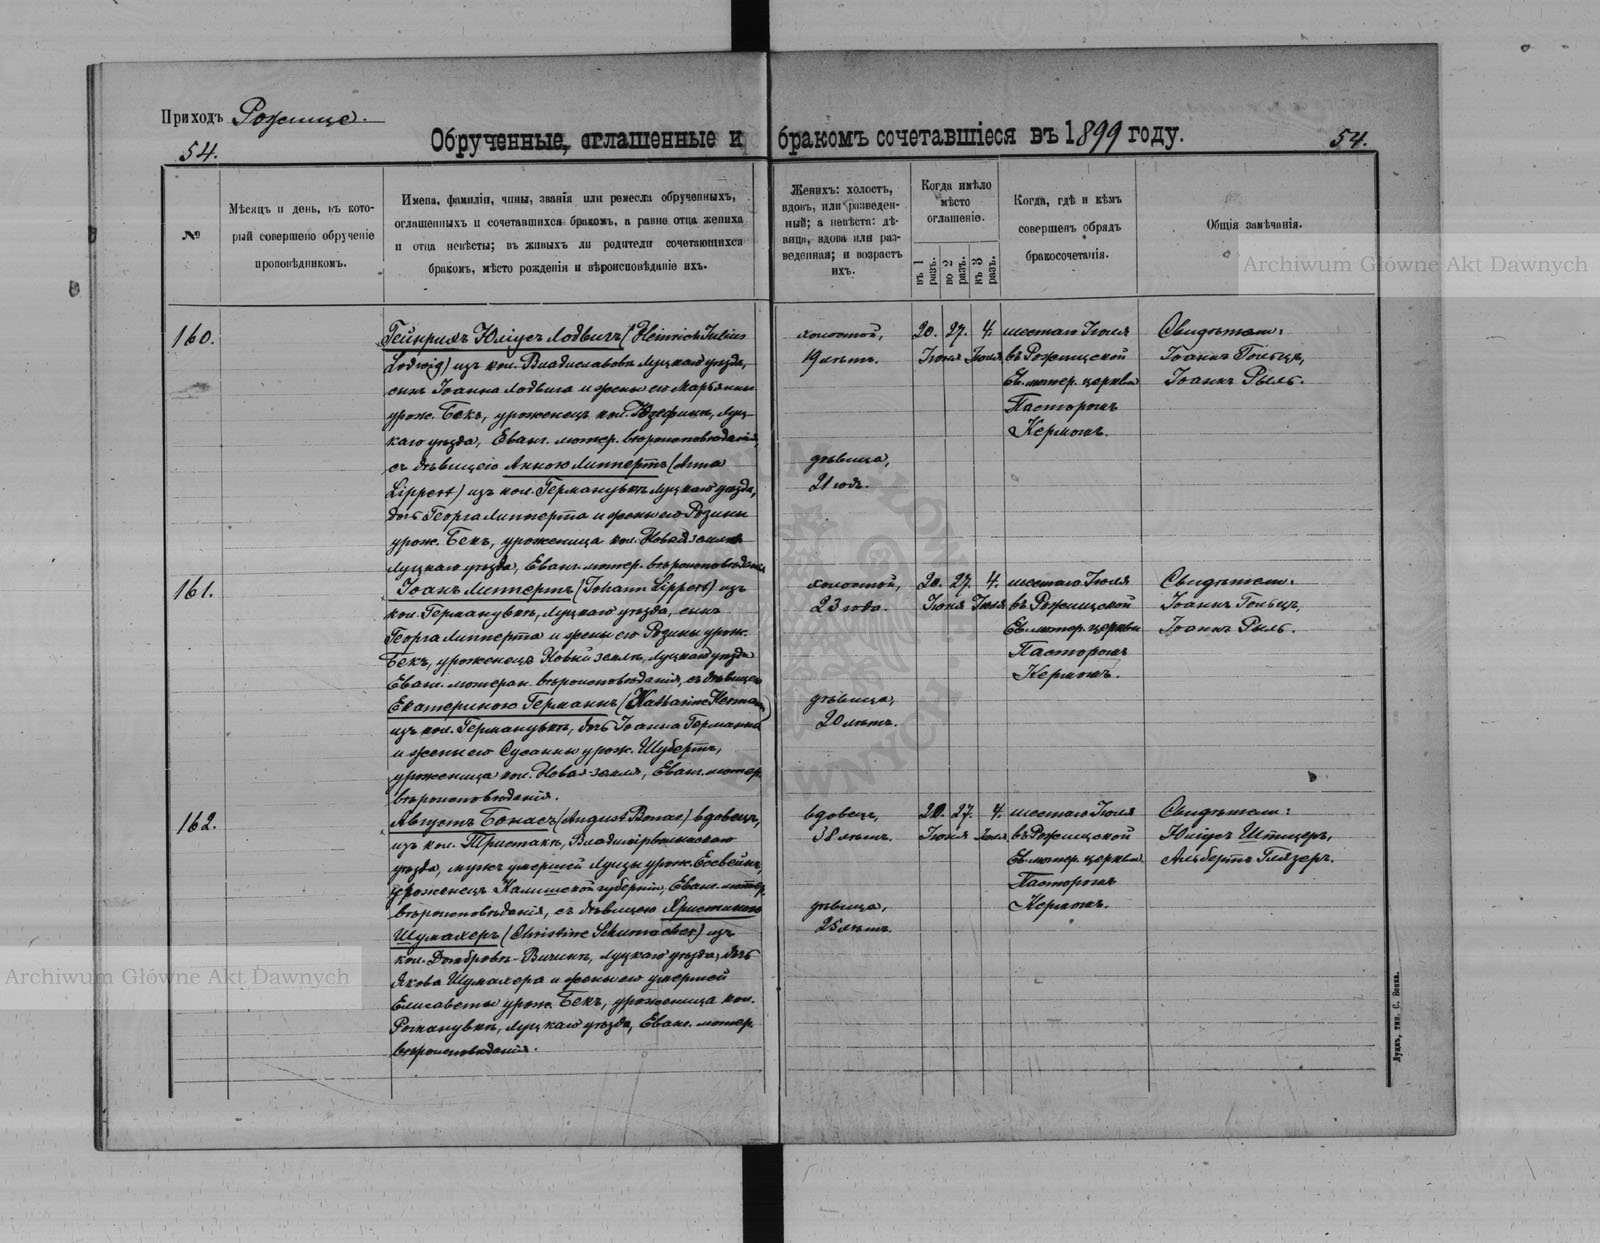 Приходъ Рожище.
54.
Обрученные, оглашенные и бракомъ сочетавшіеся въ 1899 году.
54.
№
Мѣсяцъ и день, въ кото-
рый совершено обрученіе
проповѣдникомъ.
Имена, фамиліи, чины, званія или ремесла обрученныхъ,
оглашенныхъ и сочетавшихся бракомъ, а равно отца жениха
и отца невѣсты; въ живыхъ ли родители сочетающихся
бракомъ, мѣсто рожденія и вѣроисповѣданіе ихъ.
Женихъ: холостъ,
вдовъ, или разведен-
ный; а невѣста: дѣ-
вица, вдова или раз-
веденная; и возрастъ
ихъ.
Когда имѣло
мѣсто
оглашеніе.
въ 1 разъ.
во 2 разъ.
въ 3 разъ.
Когда, гдѣ и кѣмъ
совершенъ обрядъ
бракосочетанія.
Общія замѣчанія.
160.
Гейнрихъ Юліусъ Лодвигъ (Heinrich Julius
Lodwig) изъ кол. Владиславовъ Луцкаго уѣзда,
сынъ Іоанна Лодвига и жены его Марьянны
урож. Бекъ, уроженецъ кол. Юзефинъ, Луц-
каго уѣзда, Еванг. лютер. вѣроисповѣданія,
съ дѣвицею Анною Липпертъ (Anna
Lippert) изъ кол. Германувкъ Луцкаго уѣзда,
дочь Георга Липперта и жены его Розины
урож. Бекъ, уроженица кол. Новая земля
Луцкаго уѣзда, Еванг. лютер. вѣроисповѣданія
холостой,
19 лѣтъ.
дѣвица,
21 годъ.
20. 27. 4.
Іюня Іюля
шестаго Іюля
въ Рожищской
Ев. лютер. церкви
Пасторомъ
Кермомъ.
Свидѣтели:
Іоаннъ Гольцъ,
Іоаннъ Рыль.
161.
Іоанъ Липпертъ (Johann Lippert) изъ
кол. Германувкъ, Луцкаго уѣзда, сынъ
Георга Липперта и жены его Розины урож.
Бекъ, уроженецъ Новой земли, Луцкаго уѣзда
Еванг. лютеран. вѣроисповѣданія, съ дѣвицею
Екатериною Германъ (Katharine Hermann)
изъ кол. Германувкъ, дочь Іоанна Германна
и жены его Сусанны урож. Шубертъ,
уроженица кол. Новая-земля, Еванг. лютер.
вѣроисповѣданія.
холостой,
23 года.
дѣвица,
20 лѣтъ.
20. 27. 4.
Іюня Іюля
шестаго Іюля
въ Рожищской
Ев. лютер. церкви
Пасторомъ
Кермомъ.
Свидѣтели:
Іоаннъ Гольцъ,
Іоаннъ Рыль.
162.
Августъ Бонасъ (August Bonas) вдовецъ,
изъ кол. Тристакъ, Владимірволынскаго
уѣзда, мужъ умершей Луизы урож.
уроженецъ Калишской губерніи, Еванг. лютер.
вѣроисповѣданія, съ дѣвицею Христиною
Шумахеръ (Christine Schumacher) изъ
кол. Домбровъ-Вичинъ, Луцкаго уѣзда, дочь
Якова Шумахера и жены его умершей
Елисаветы урож. Бекъ, уроженица кол.
Романувкъ, Луцкаго уѣзда, Еванг. лютер.
вѣроисповѣданія.
вдовецъ,
38 лѣтъ.
дѣвица,
25 лѣтъ.
20. 27. 4.
Іюня Іюля
шестаго Іюля
въ Рожищской
Ев. лютер. церкви
Пасторомъ
Кермомъ.
Свидѣтели:
Юліусъ Штицеръ,
Альбертъ Глязеръ.
Луцкъ, тип. С. Бонка.
Archiwum Główne Akt Dawnych
Archiwum Główne Akt Dawnych